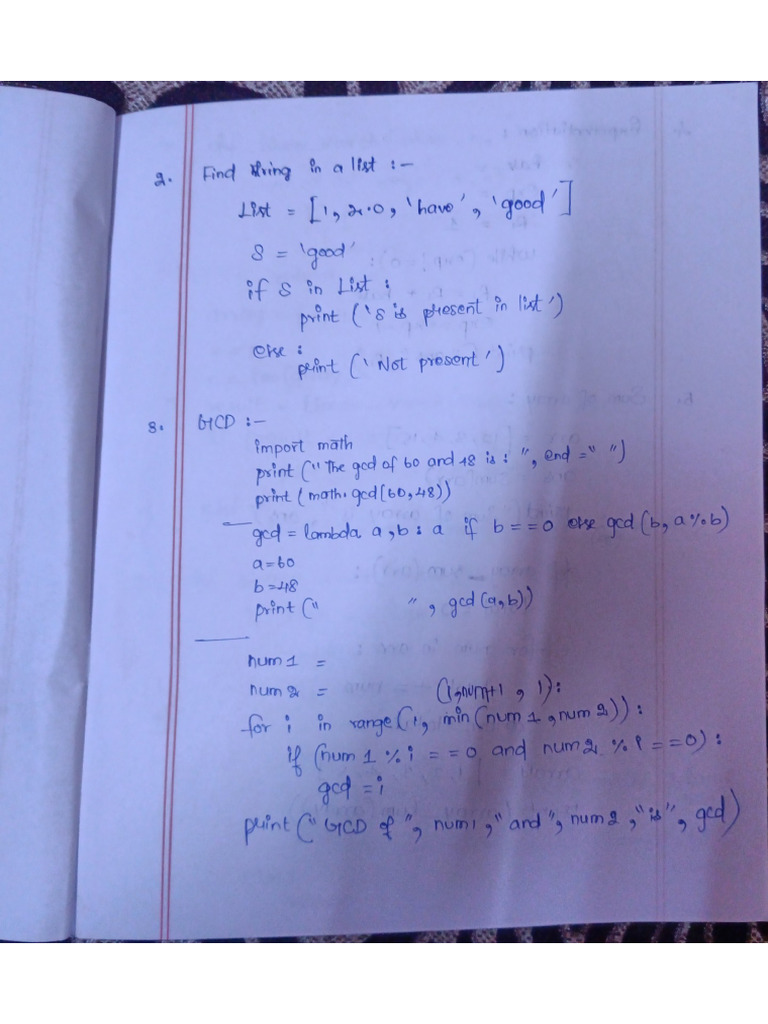 2. Find string in a list :-
List = [1, 2.0, 'have', 'good']
S = 'good'
if S in List :
print ('S is present in list')
else :
print ('Not present')
3. GCD :-
import math
print ("The gcd of 60 and 48 is : ", end = " ")
print (math.gcd(60,48))
gcd = lambda a,b : a if b==0 else gcd(b, a%b)
a=60
b=48
print (" ", gcd(a,b))
num1 =
num2 = (1,num+1, 1):
for i in range(1, min(num1,num2)):
if (num1 % i ==0 and num2 % i ==0) :
gcd = i
print ("GCD of ", num1, "and", num2, "is", gcd)